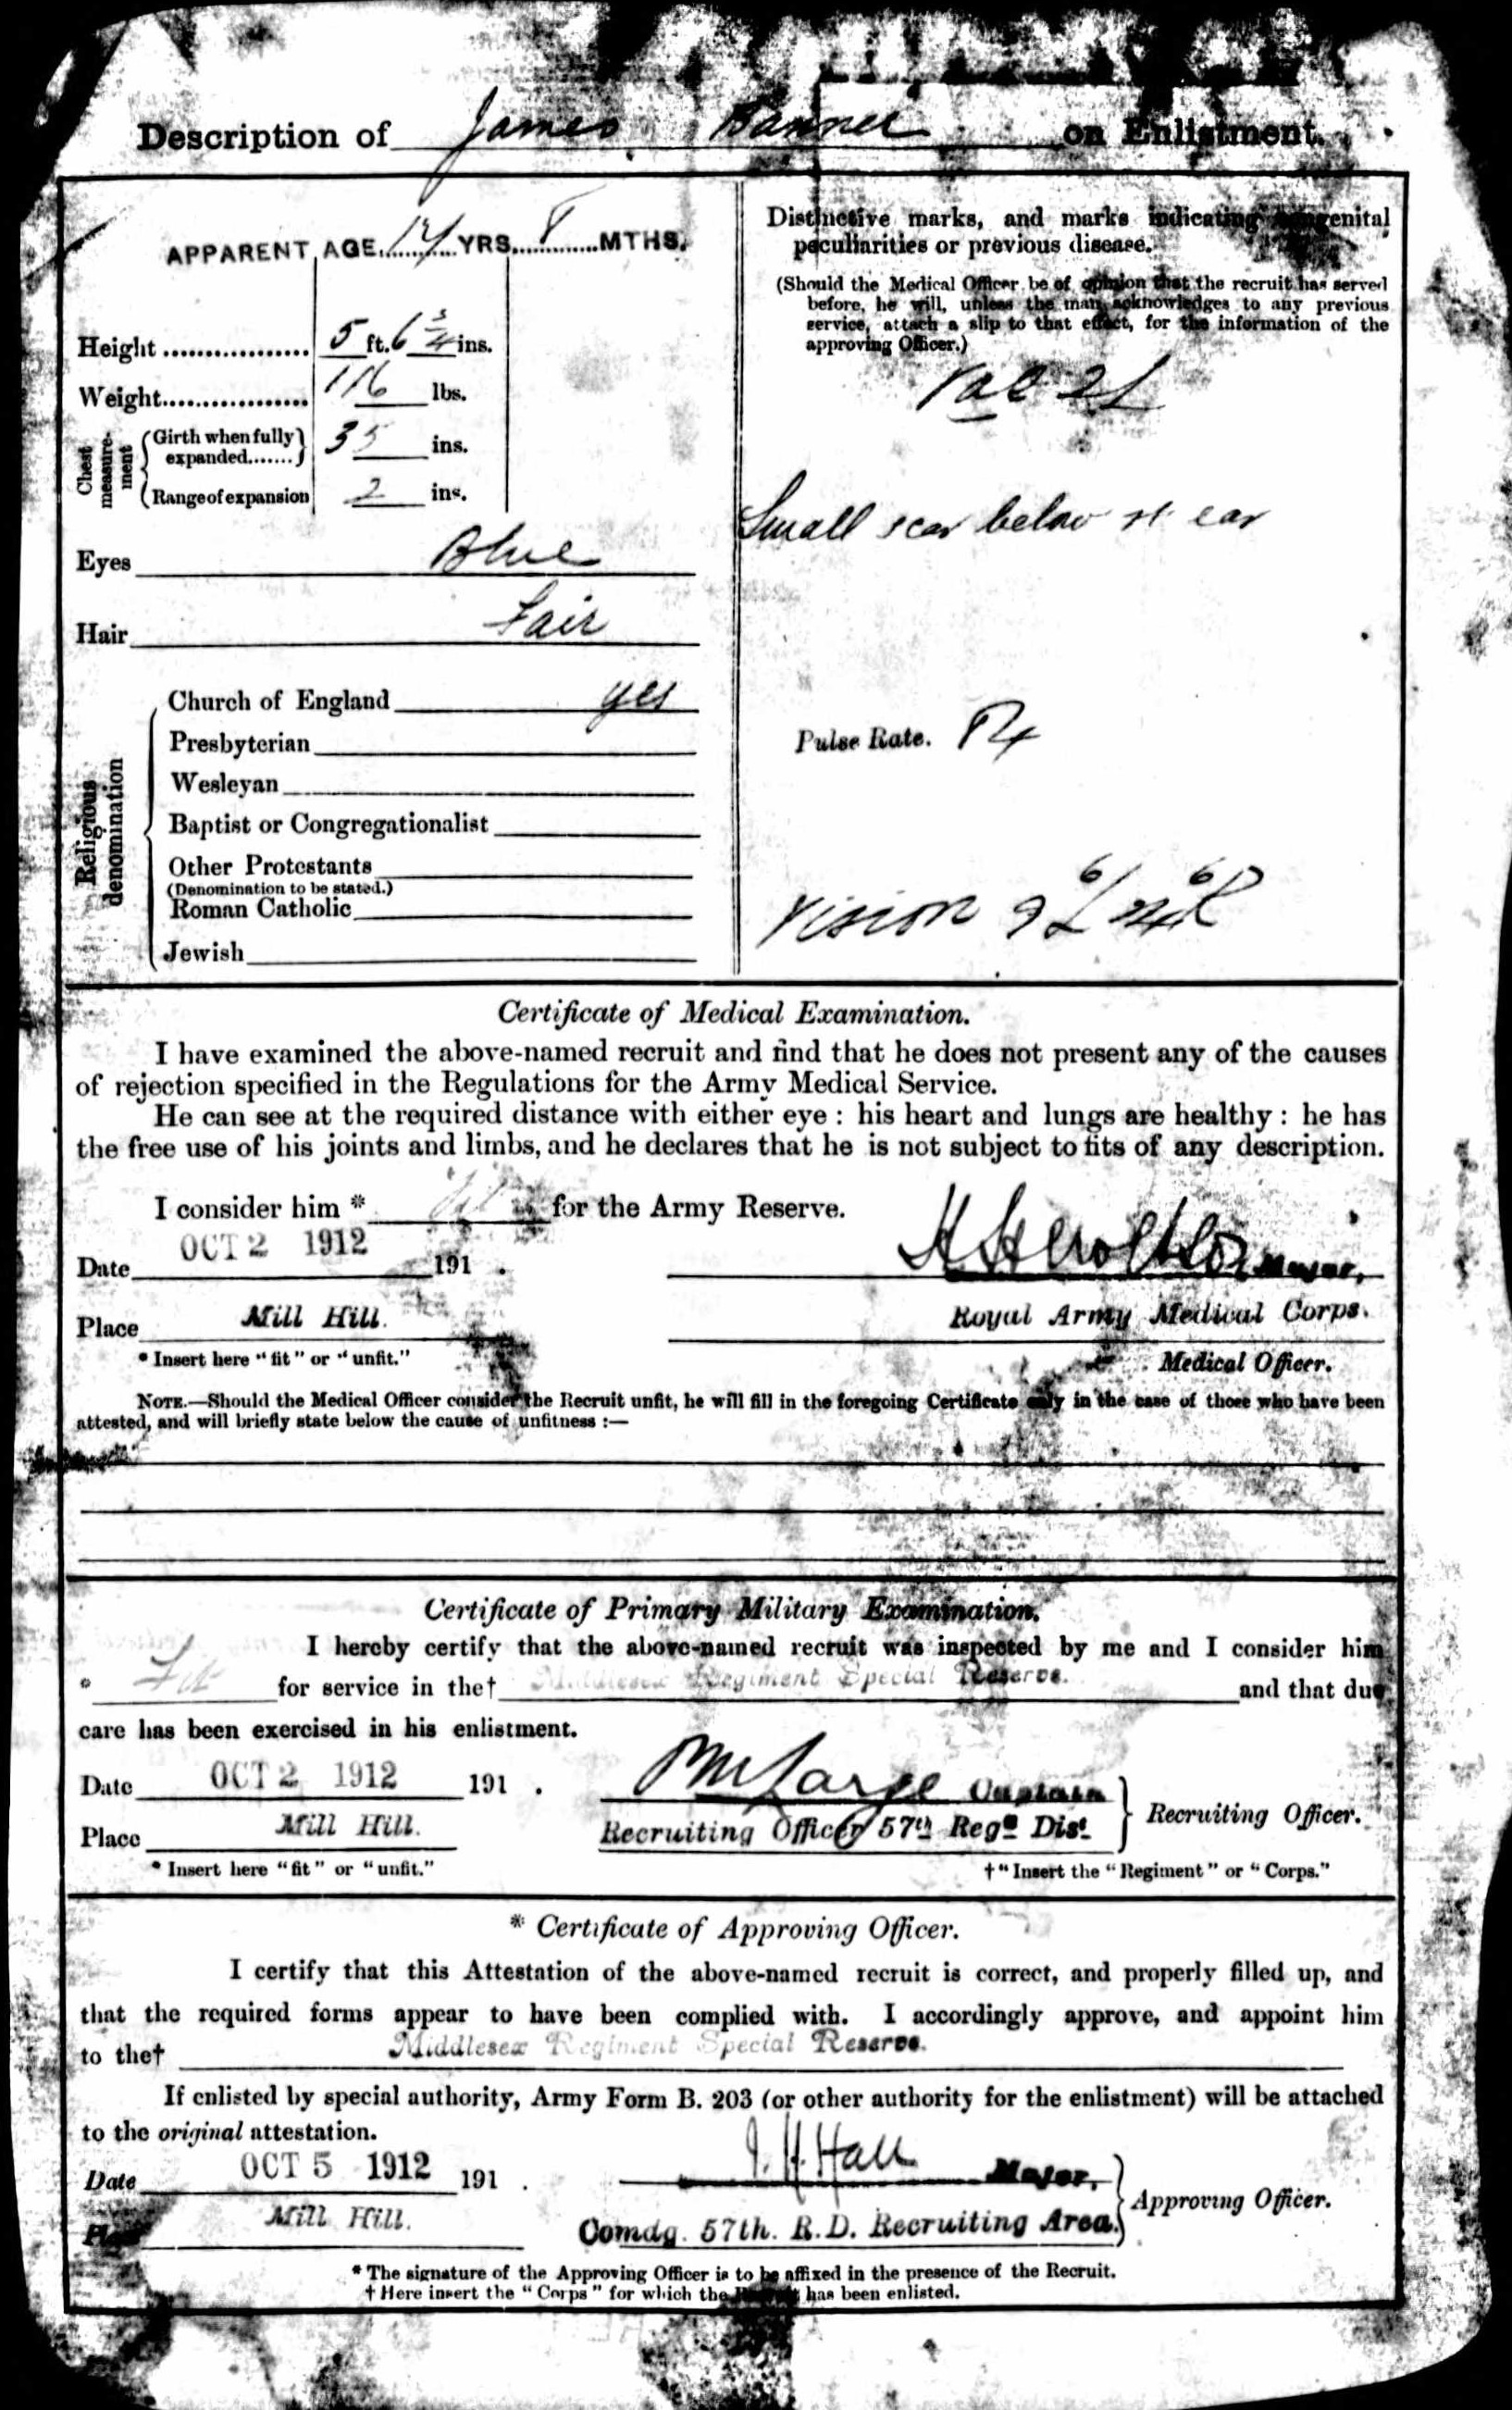 Description of James Banner on Enlistment.
APPARENT AGE 17 YRS. 8 MTHS.
Height 5 ft. 6 3/4 ins.
Weight 116 lbs.
Chest measurement
Girth when fully expanded 35 ins.
Range of expansion 2 ins.
Eyes Blue
Hair Fair
Religious denomination
Church of England yes
Presbyterian
Wesleyan
Baptist or Congregationalist
Other Protestants
(Denomination to be stated.)
Roman Catholic
Jewish
Distinctive marks, and marks indicating congenital
peculiarities or previous disease.
(Should the Medical Officer be of opinion that the recruit has served
before, he will, unless the man acknowledges to any previous
service, attach a slip to that effect, for the information of the
approving Officer.)
Vac 2 L
Small scar below rt ear
Pulse Rate. 84
Vision L R
Certificate of Medical Examination.
I have examined the above-named recruit and find that he does not present any of the causes
of rejection specified in the Regulations for the Army Medical Service.
He can see at the required distance with either eye : his heart and lungs are healthy : he has
the free use of his joints and limbs, and he declares that he is not subject to fits of any description.
I consider him * fit for the Army Reserve.
Date OCT 2 1912 191 .
Major,
Place Mill Hill.
Royal Army Medical Corps.
* Insert here "fit" or "unfit."
Medical Officer.
NOTE.—Should the Medical Officer consider the Recruit unfit, he will fill in the foregoing Certificate only in the case of those who have been
attested, and will briefly state below the cause of unfitness :—
Certificate of Primary Military Examination.
I hereby certify that the above-named recruit was inspected by me and I consider him
* Fit for service in the† Middlesex Regiment Special Reserve. and that due
care has been exercised in his enlistment.
Date OCT 2 1912 191 .
Large Captain
Place Mill Hill.
Recruiting Officer 57th Regl Dist
Recruiting Officer.
* Insert here "fit" or "unfit."
† "Insert the "Regiment" or "Corps."
* Certificate of Approving Officer.
I certify that this Attestation of the above-named recruit is correct, and properly filled up, and
that the required forms appear to have been complied with. I accordingly approve, and appoint him
to the† Middlesex Regiment Special Reserve.
If enlisted by special authority, Army Form B. 203 (or other authority for the enlistment) will be attached
to the original attestation.
Date OCT 5 1912 191 .
J. H. Hall Major,
Place Mill Hill.
Comdg. 57th. R.D. Recruiting Area.
Approving Officer.
* The signature of the Approving Officer is to be affixed in the presence of the Recruit.
† Here insert the "Corps" for which the Recruit has been enlisted.